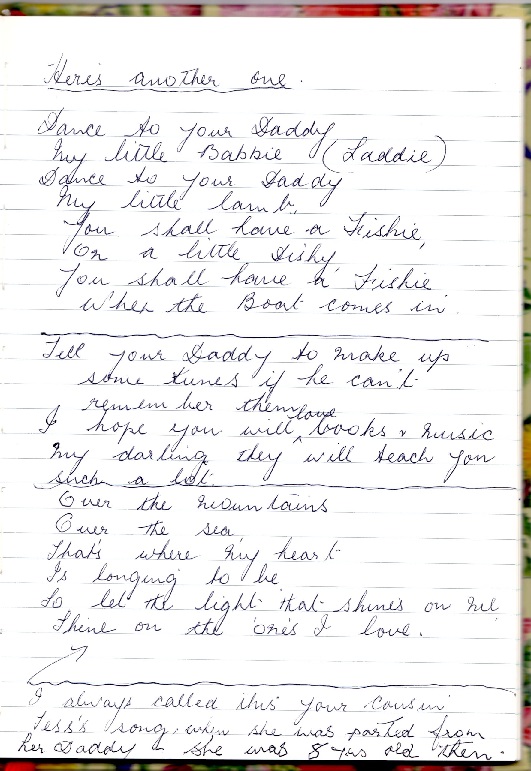 Here's another one.
Dance to your Daddy
My little Babbie (Laddie)
Dance to your Daddy
My little lamb,
You shall have a Fishie,
On a little Dishy
You shall have a Fishie
When the Boat comes in.
Tell your Daddy to make up
some tunes if he can't
remember them
I hope you will love books & music
My darling they will teach you
such a lot.
Over the mountains
Over the sea
That's where my heart
Is longing to be
So let the light that shines on me
Shine on the one's I love.
I always called this your cousin
Tess's song, when she was parted from
her Daddy - she was 8 yrs old then.